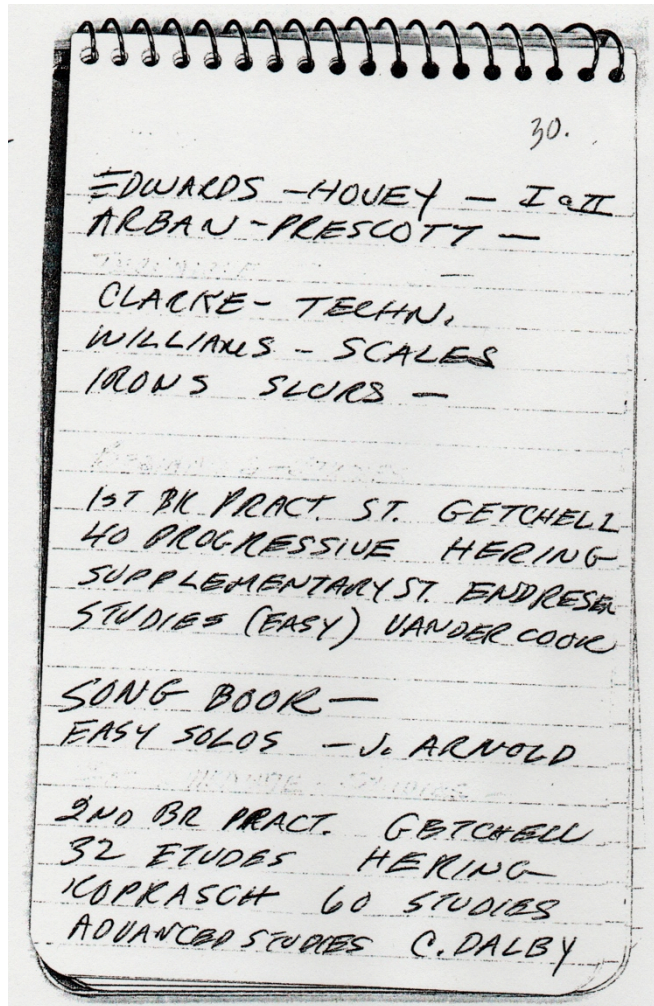 30.
EDWARDS - HOVEY - I & II
ARBAN - PRESCOTT -
CLARKE - TECHN.
WILLIAMS - SCALES
IRONS SLURS -
1ST BK PRACT. ST. GETCHELL
40 PROGRESSIVE HERING
SUPPLEMENTARY ST. ENDRESEN
STUDIES (EASY) VANDER COOK
SONG BOOK -
EASY SOLOS - J. ARNOLD
2ND BK PRACT. GETCHELL
32 ETUDES HERING
KOPRASCH 60 STUDIES
ADVANCED STUDIES C. DALBY